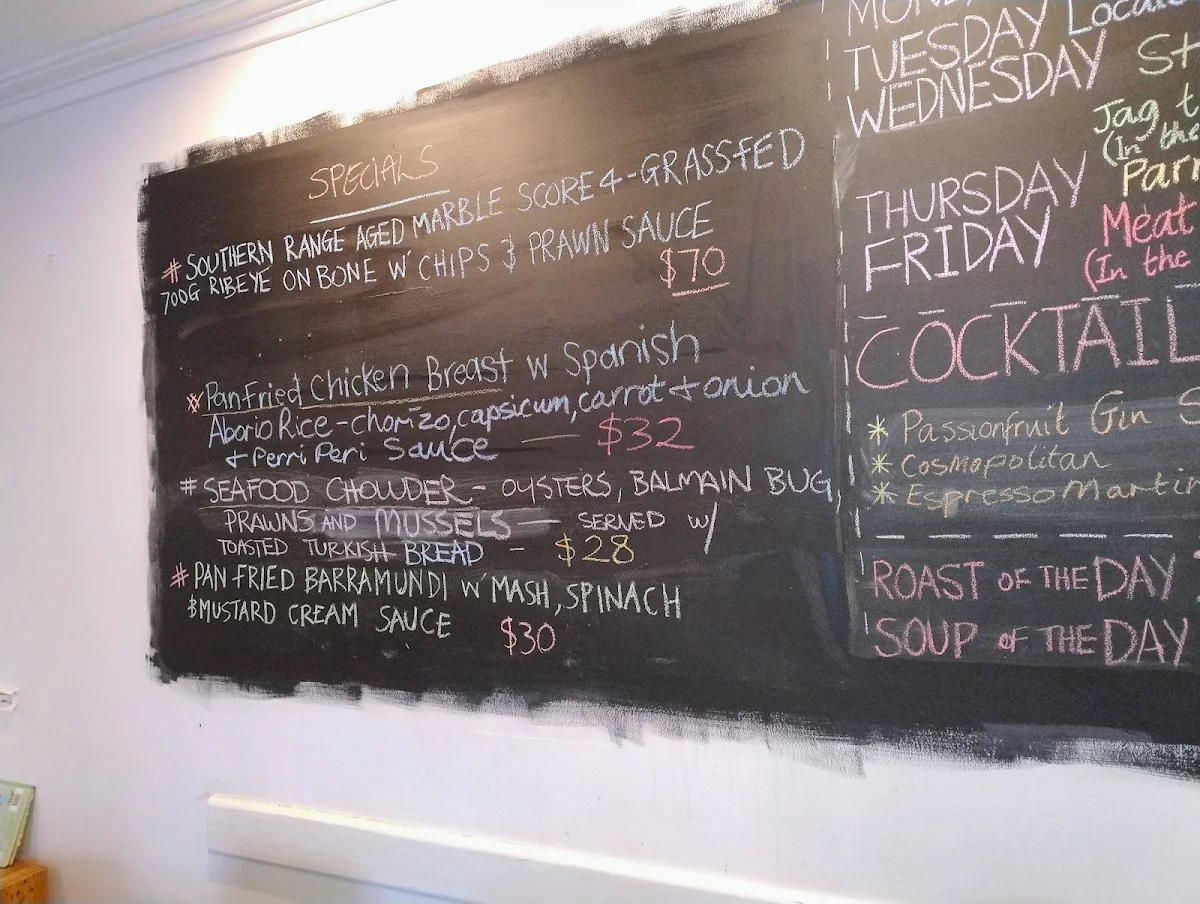 SPECIALS
# SOUTHERN RANGE AGED MARBLE SCORE 4-GRASSFED
700G RIBEYE ON BONE W' CHIPS & PRAWN SAUCE
$70
* PanFried Chicken Breast w Spanish
Aborio Rice - chorizo, capsicum, carrot + onion
+ Perri Peri Sauce — $32
# SEAFOOD CHOWDER - OYSTERS, BALMAIN BUG,
PRAWNS AND MUSSELS — SERVED W/
TOASTED TURKISH BREAD - $28
# PAN FRIED BARRAMUNDI W' MASH, SPINACH
& MUSTARD CREAM SAUCE $30
TUESDAY
WEDNESDAY
Jag
(In the
THURSDAY
FRIDAY Meat
(In the
COCKTAIL
* Passionfruit Gin
* Cosmopolitan
* Espresso Martin
ROAST OF THE DAY
SOUP OF THE DAY